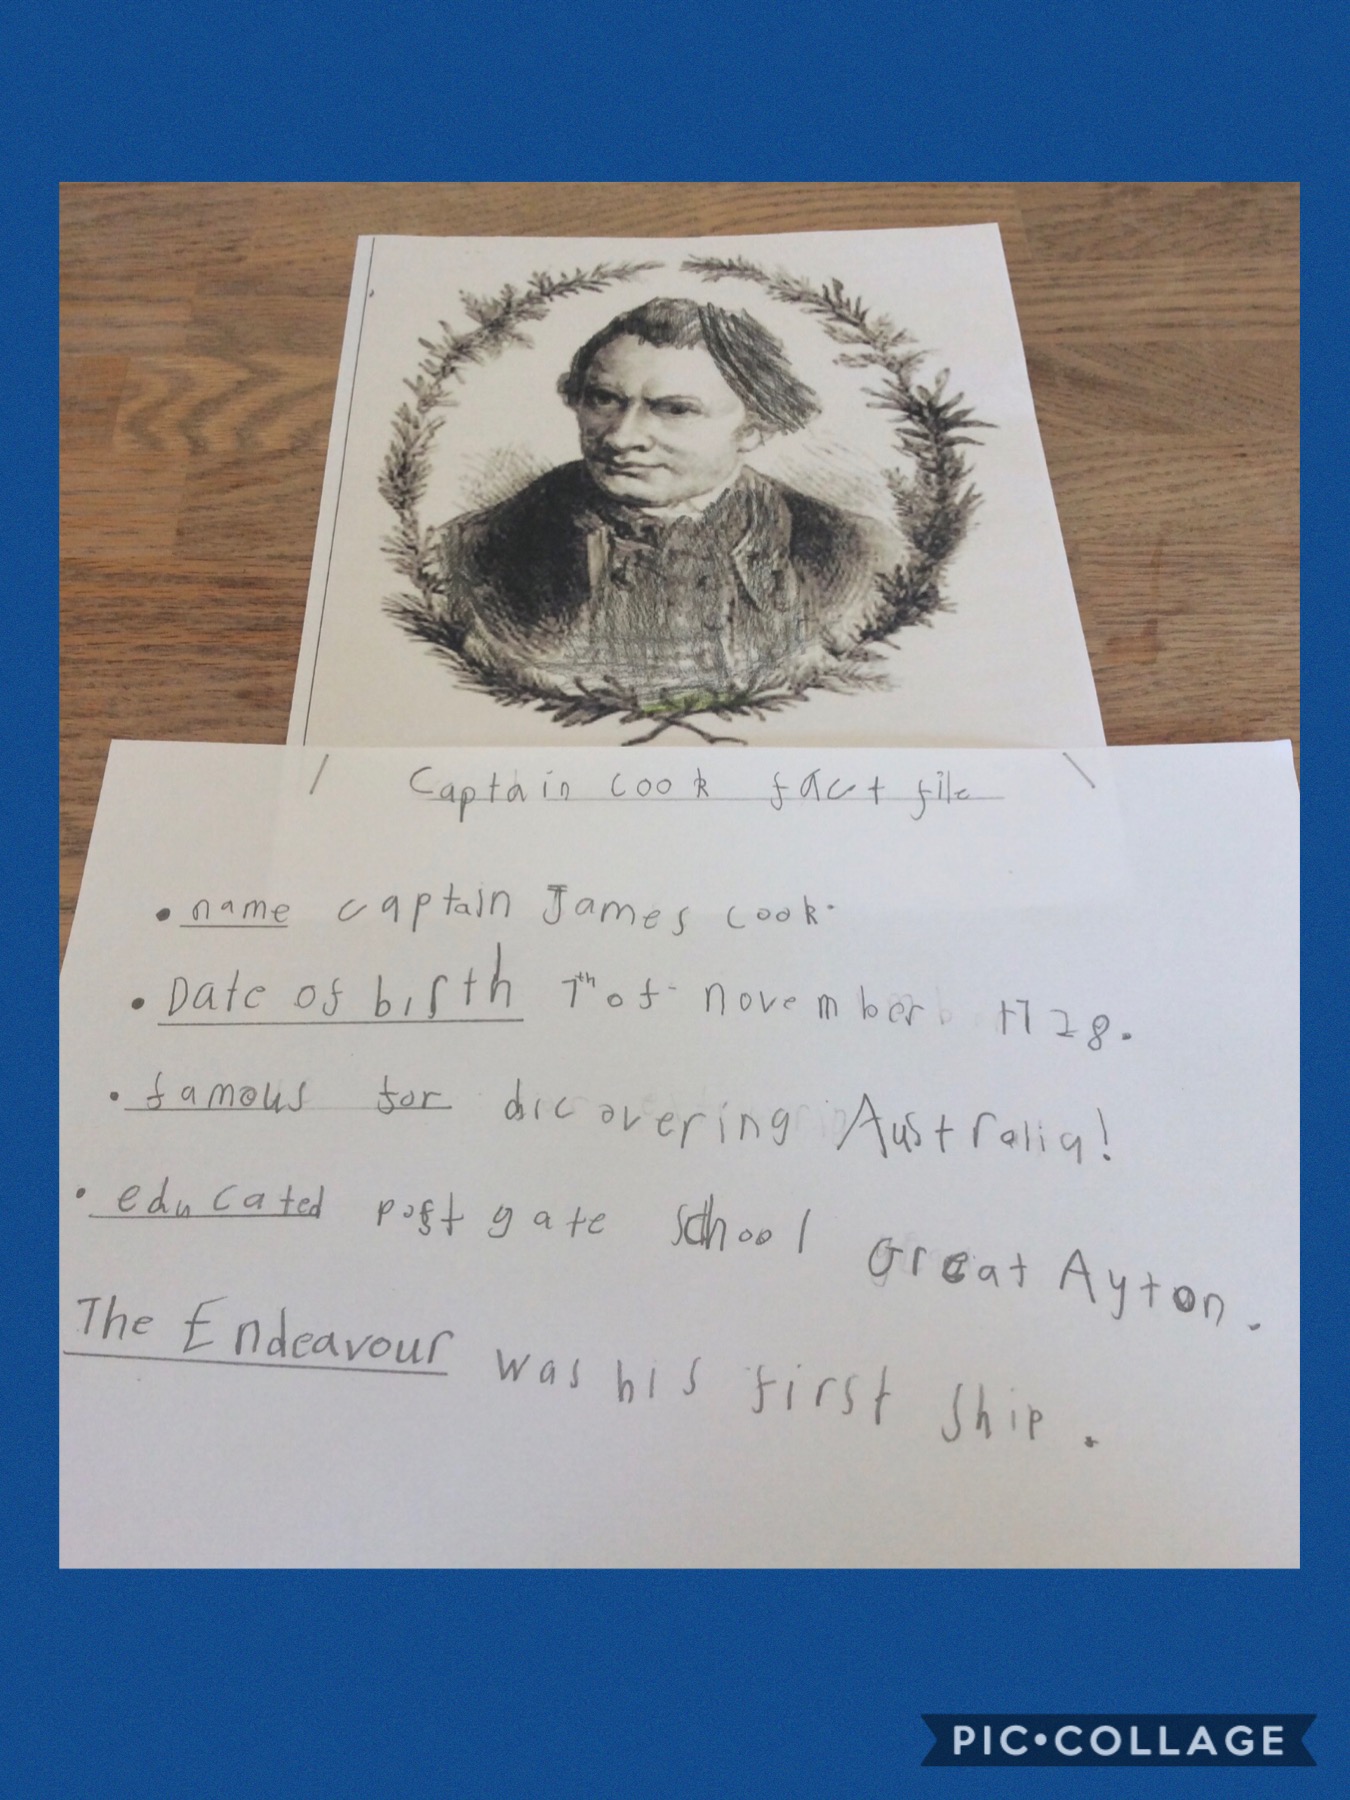 Captain cook fact file
• name captain James cook.
• Date of birth 7th of november 1728.
• famous for dicovering Australia!
• educated postgate school Great Ayton.
The Endeavour was his first ship.
PIC•COLLAGE